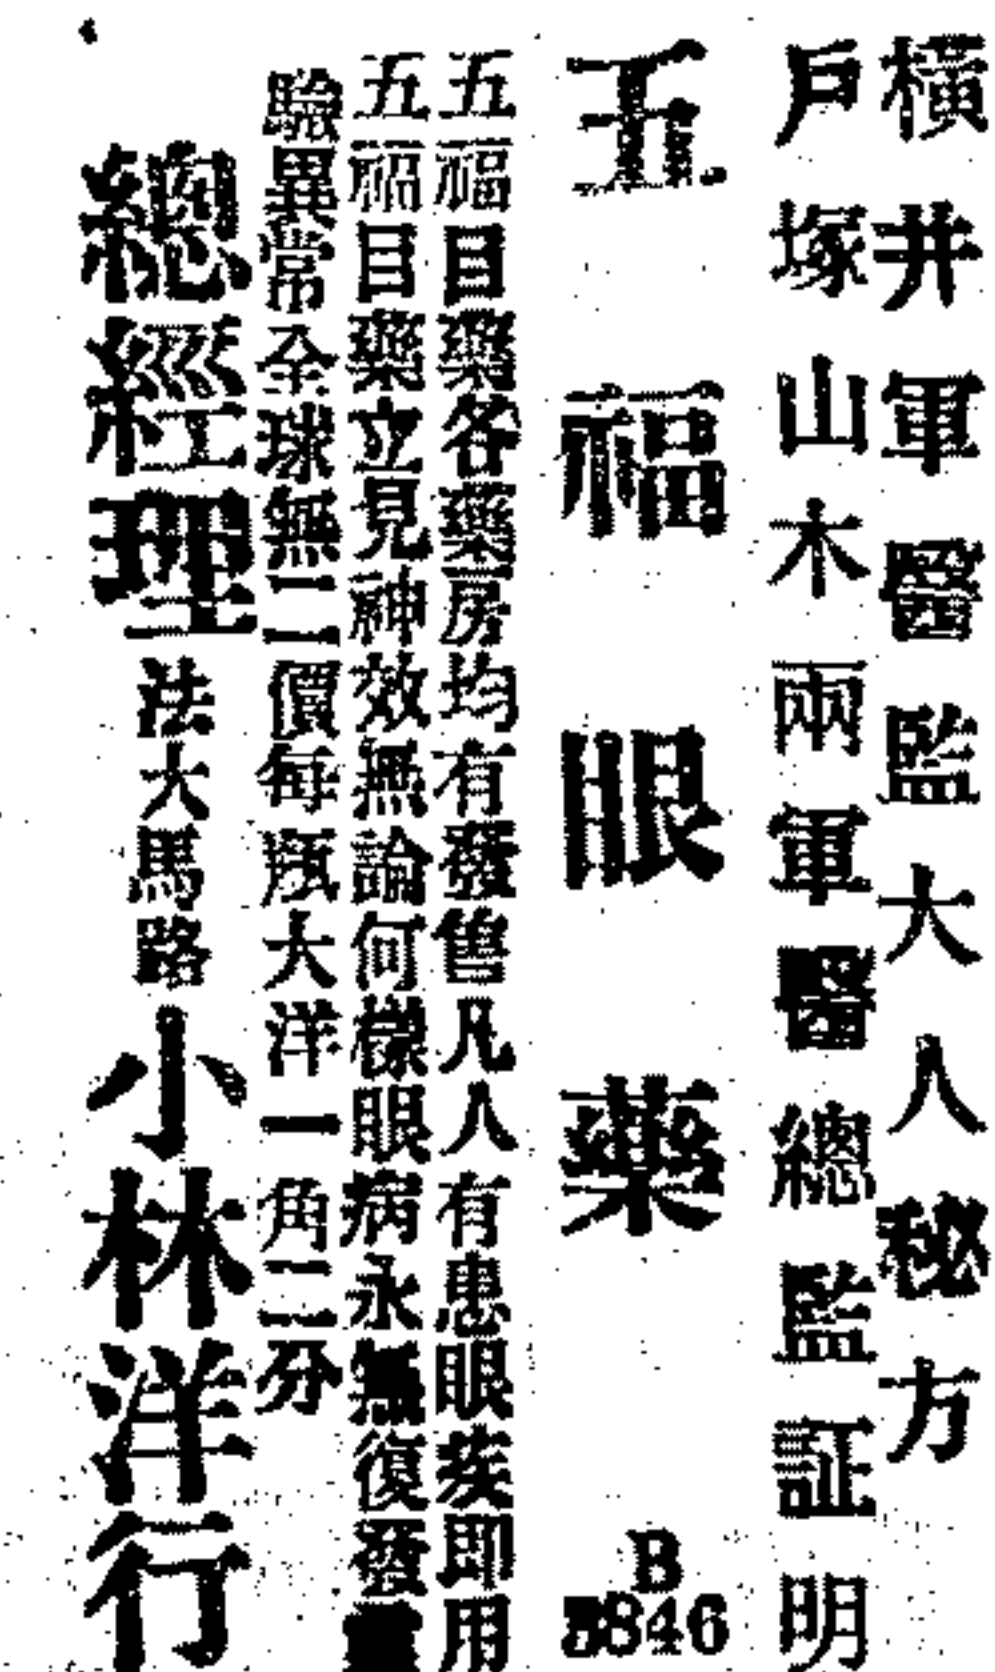 橫井軍醫監大人秘方
戶塚山木兩軍醫總監証明
五福眼藥
B
5846
五福目藥各藥房均有發售凡人有患眼疾即用
五福目藥立見神效無論何樣眼病永無復發
驗異常全球無二價每瓶大洋一角二分
總經理法大馬路小林洋行